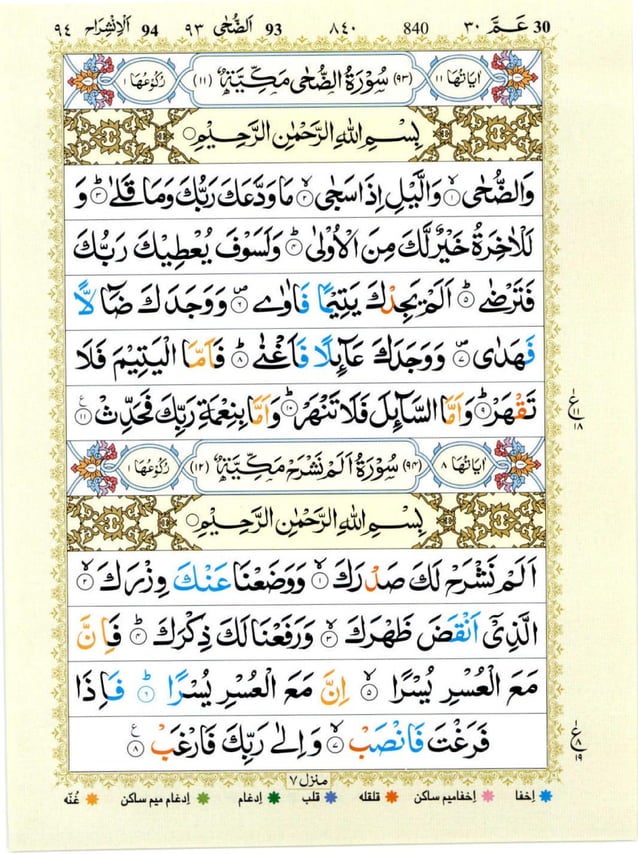 ٩٤ اَلْاِنْشِرَاح 94 ٩٣ اَلضُّحٰى 93 ٨٤٠ 840 ٣٠ عَـمَّ 30
رُكُوْعُهَا ١ (١١) سُوْرَةُ الضُّحٰى مَكِّيَّةٌ (٩٣) اٰيَاتُهَا ١١
بِسْمِ اللّٰهِ الرَّحْمٰنِ الرَّحِيْمِ ○
وَالضُّحٰى ۙ﴿١﴾ وَالَّيْلِ اِذَا سَجٰى ۙ﴿٢﴾ مَا وَدَّعَكَ رَبُّكَ وَمَا قَلٰى ؕ﴿٣﴾ وَ
لَلْاٰخِرَةُ خَيْرٌ لَّكَ مِنَ الْاُوْلٰى ؕ﴿٤﴾ وَلَسَوْفَ يُعْطِيْكَ رَبُّكَ
فَتَرْضٰى ؕ﴿٥﴾ اَلَمْ يَجِدْكَ يَتِيْمًا فَاٰوٰى ۪﴿٦﴾ وَوَجَدَكَ ضَآلًّا
فَهَدٰى ۪﴿٧﴾ وَوَجَدَكَ عَآئِلًا فَاَغْنٰى ؕ﴿٨﴾ فَاَمَّا الْيَتِيْمَ فَلَا
تَقْهَرْ ؕ﴿٩﴾ وَاَمَّا السَّآئِلَ فَلَا تَنْهَرْ ؕ﴿١٠﴾ وَاَمَّا بِنِعْمَةِ رَبِّكَ فَحَدِّثْ ﴿١١﴾ ع
ع ١١ ١٨
رُكُوْعُهَا ١ (١٢) سُوْرَةُ اَلَمْ نَشْرَحْ مَكِّيَّةٌ (٩٤) اٰيَاتُهَا ٨
بِسْمِ اللّٰهِ الرَّحْمٰنِ الرَّحِيْمِ ○
اَلَمْ نَشْرَحْ لَكَ صَدْرَكَ ۙ﴿١﴾ وَوَضَعْنَا عَنْكَ وِزْرَكَ ۙ﴿٢﴾
الَّذِيْٓ اَنْقَضَ ظَهْرَكَ ۙ﴿٣﴾ وَرَفَعْنَا لَكَ ذِكْرَكَ ؕ﴿٤﴾ فَاِنَّ
مَعَ الْعُسْرِ يُسْرًا ۙ﴿٥﴾ اِنَّ مَعَ الْعُسْرِ يُسْرًا ؕ﴿٦﴾ فَاِذَا
فَرَغْتَ فَانْصَبْ ۙ﴿٧﴾ وَاِلٰى رَبِّكَ فَارْغَبْ ﴿٨﴾ ع
ع ٨ ١٩
منزل ٧
اِخفا اِخفامیم ساکن قلقله قلب اِدغام اِدغام میم ساکن غُنّه